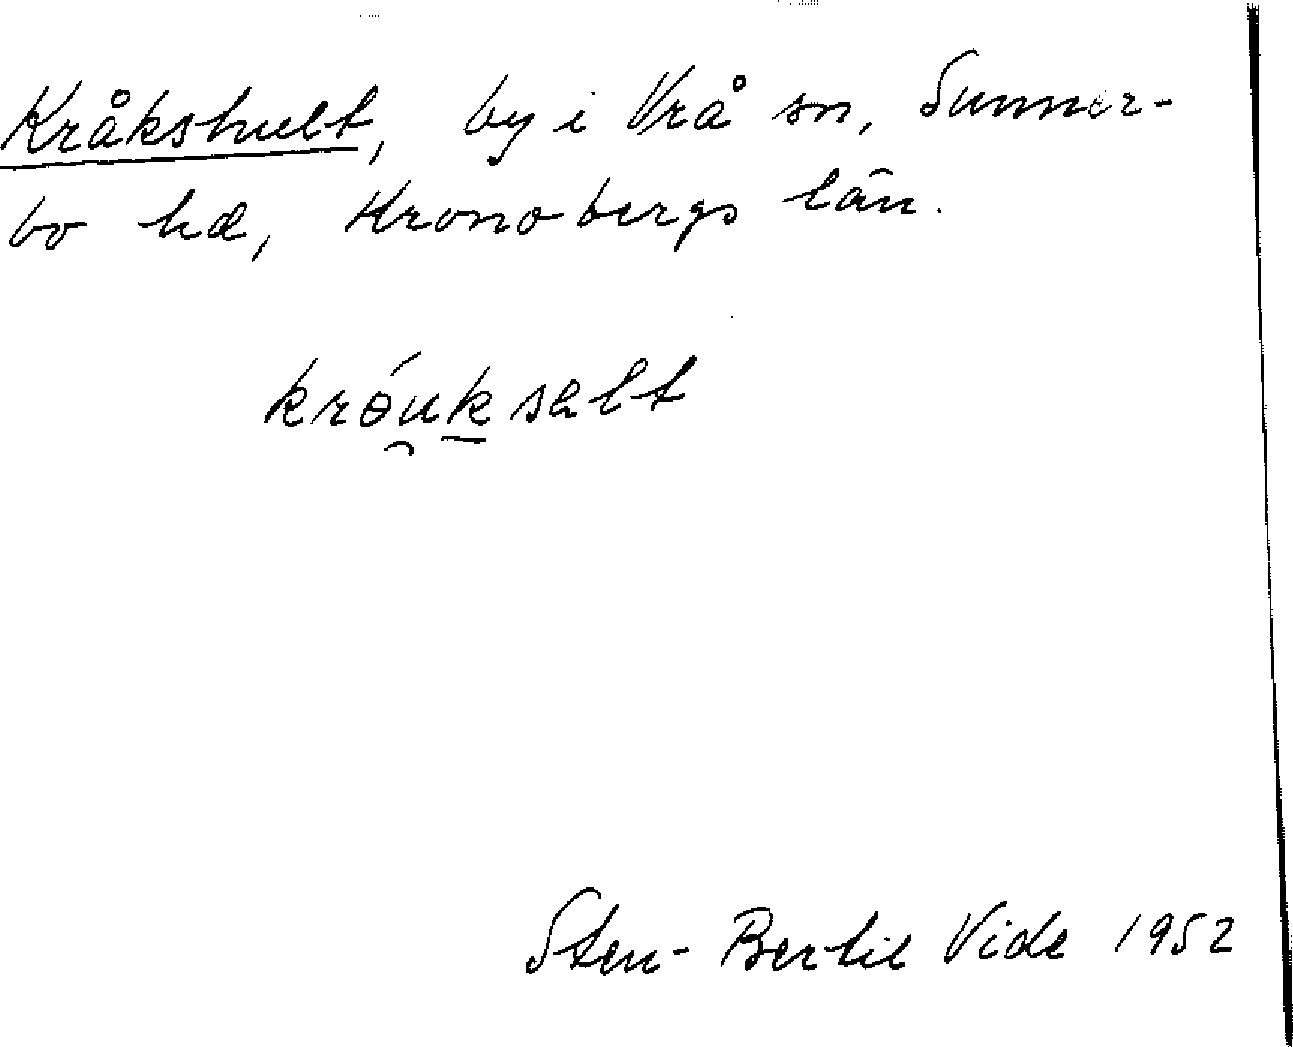 Kråkshult, by i Vrå sn, Sunner-
bo hd, Kronobergs län.
krɵ́u̯k̲səlt
Sten-Bertil Vide 1952